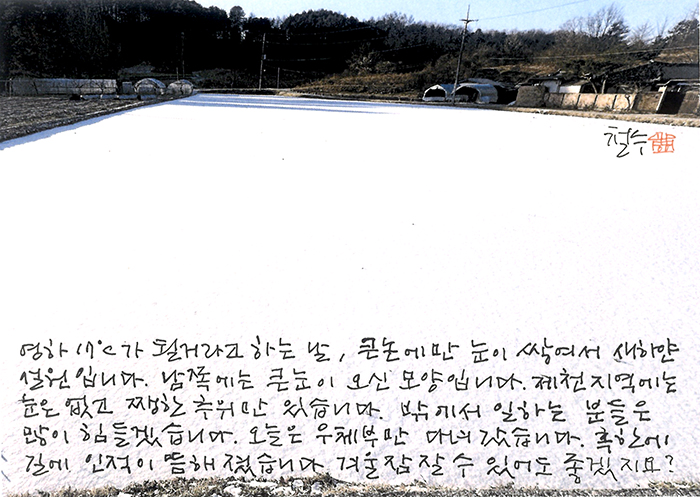 철수
영하 17℃가 될거라고 하는 날, 큰논에만 눈이 쌓여서 새하얀
설원입니다. 남쪽에는 큰눈이 오신 모양입니다. 제천지역에는
눈은 없고 쨍한 추위만 있습니다. 밖에서 일하는 분들은
많이 힘들겠습니다. 오늘은 우체부만 다녀갔습니다. 혹한에
길에 인적이 뜸해졌습니다 겨울잠 잘 수 있어도 좋겠지요?